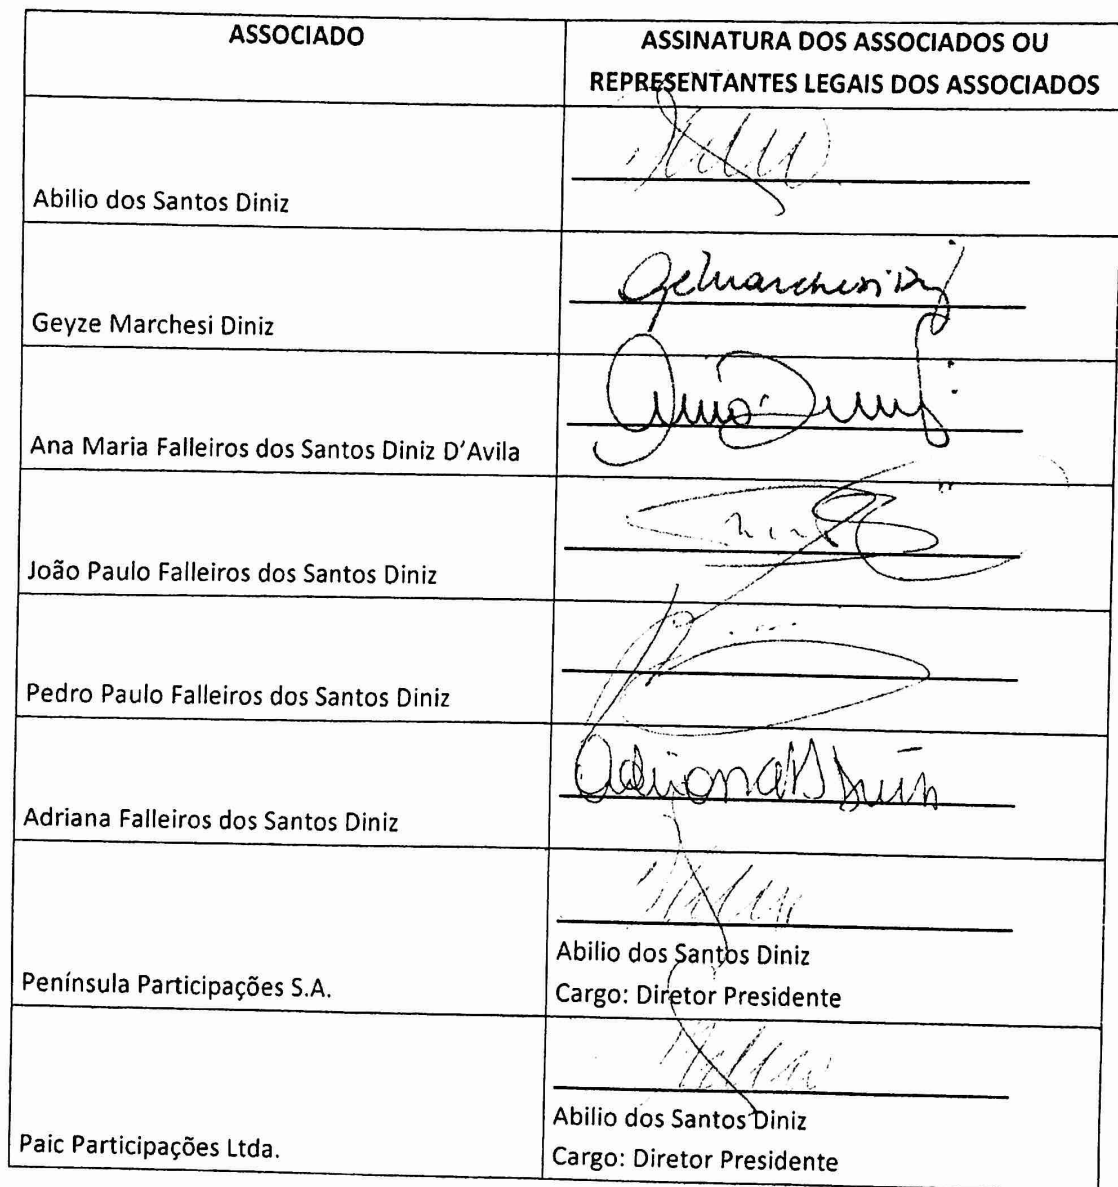 ASSOCIADO
ASSINATURA DOS ASSOCIADOS OU
REPRESENTANTES LEGAIS DOS ASSOCIADOS
Abilio dos Santos Diniz
Geyze Marchesi Diniz
Ana Maria Falleiros dos Santos Diniz D'Avila
João Paulo Falleiros dos Santos Diniz
Pedro Paulo Falleiros dos Santos Diniz
Adriana Falleiros dos Santos Diniz
Península Participações S.A.
Abilio dos Santos Diniz
Cargo: Diretor Presidente
Paic Participações Ltda.
Abilio dos Santos Diniz
Cargo: Diretor Presidente